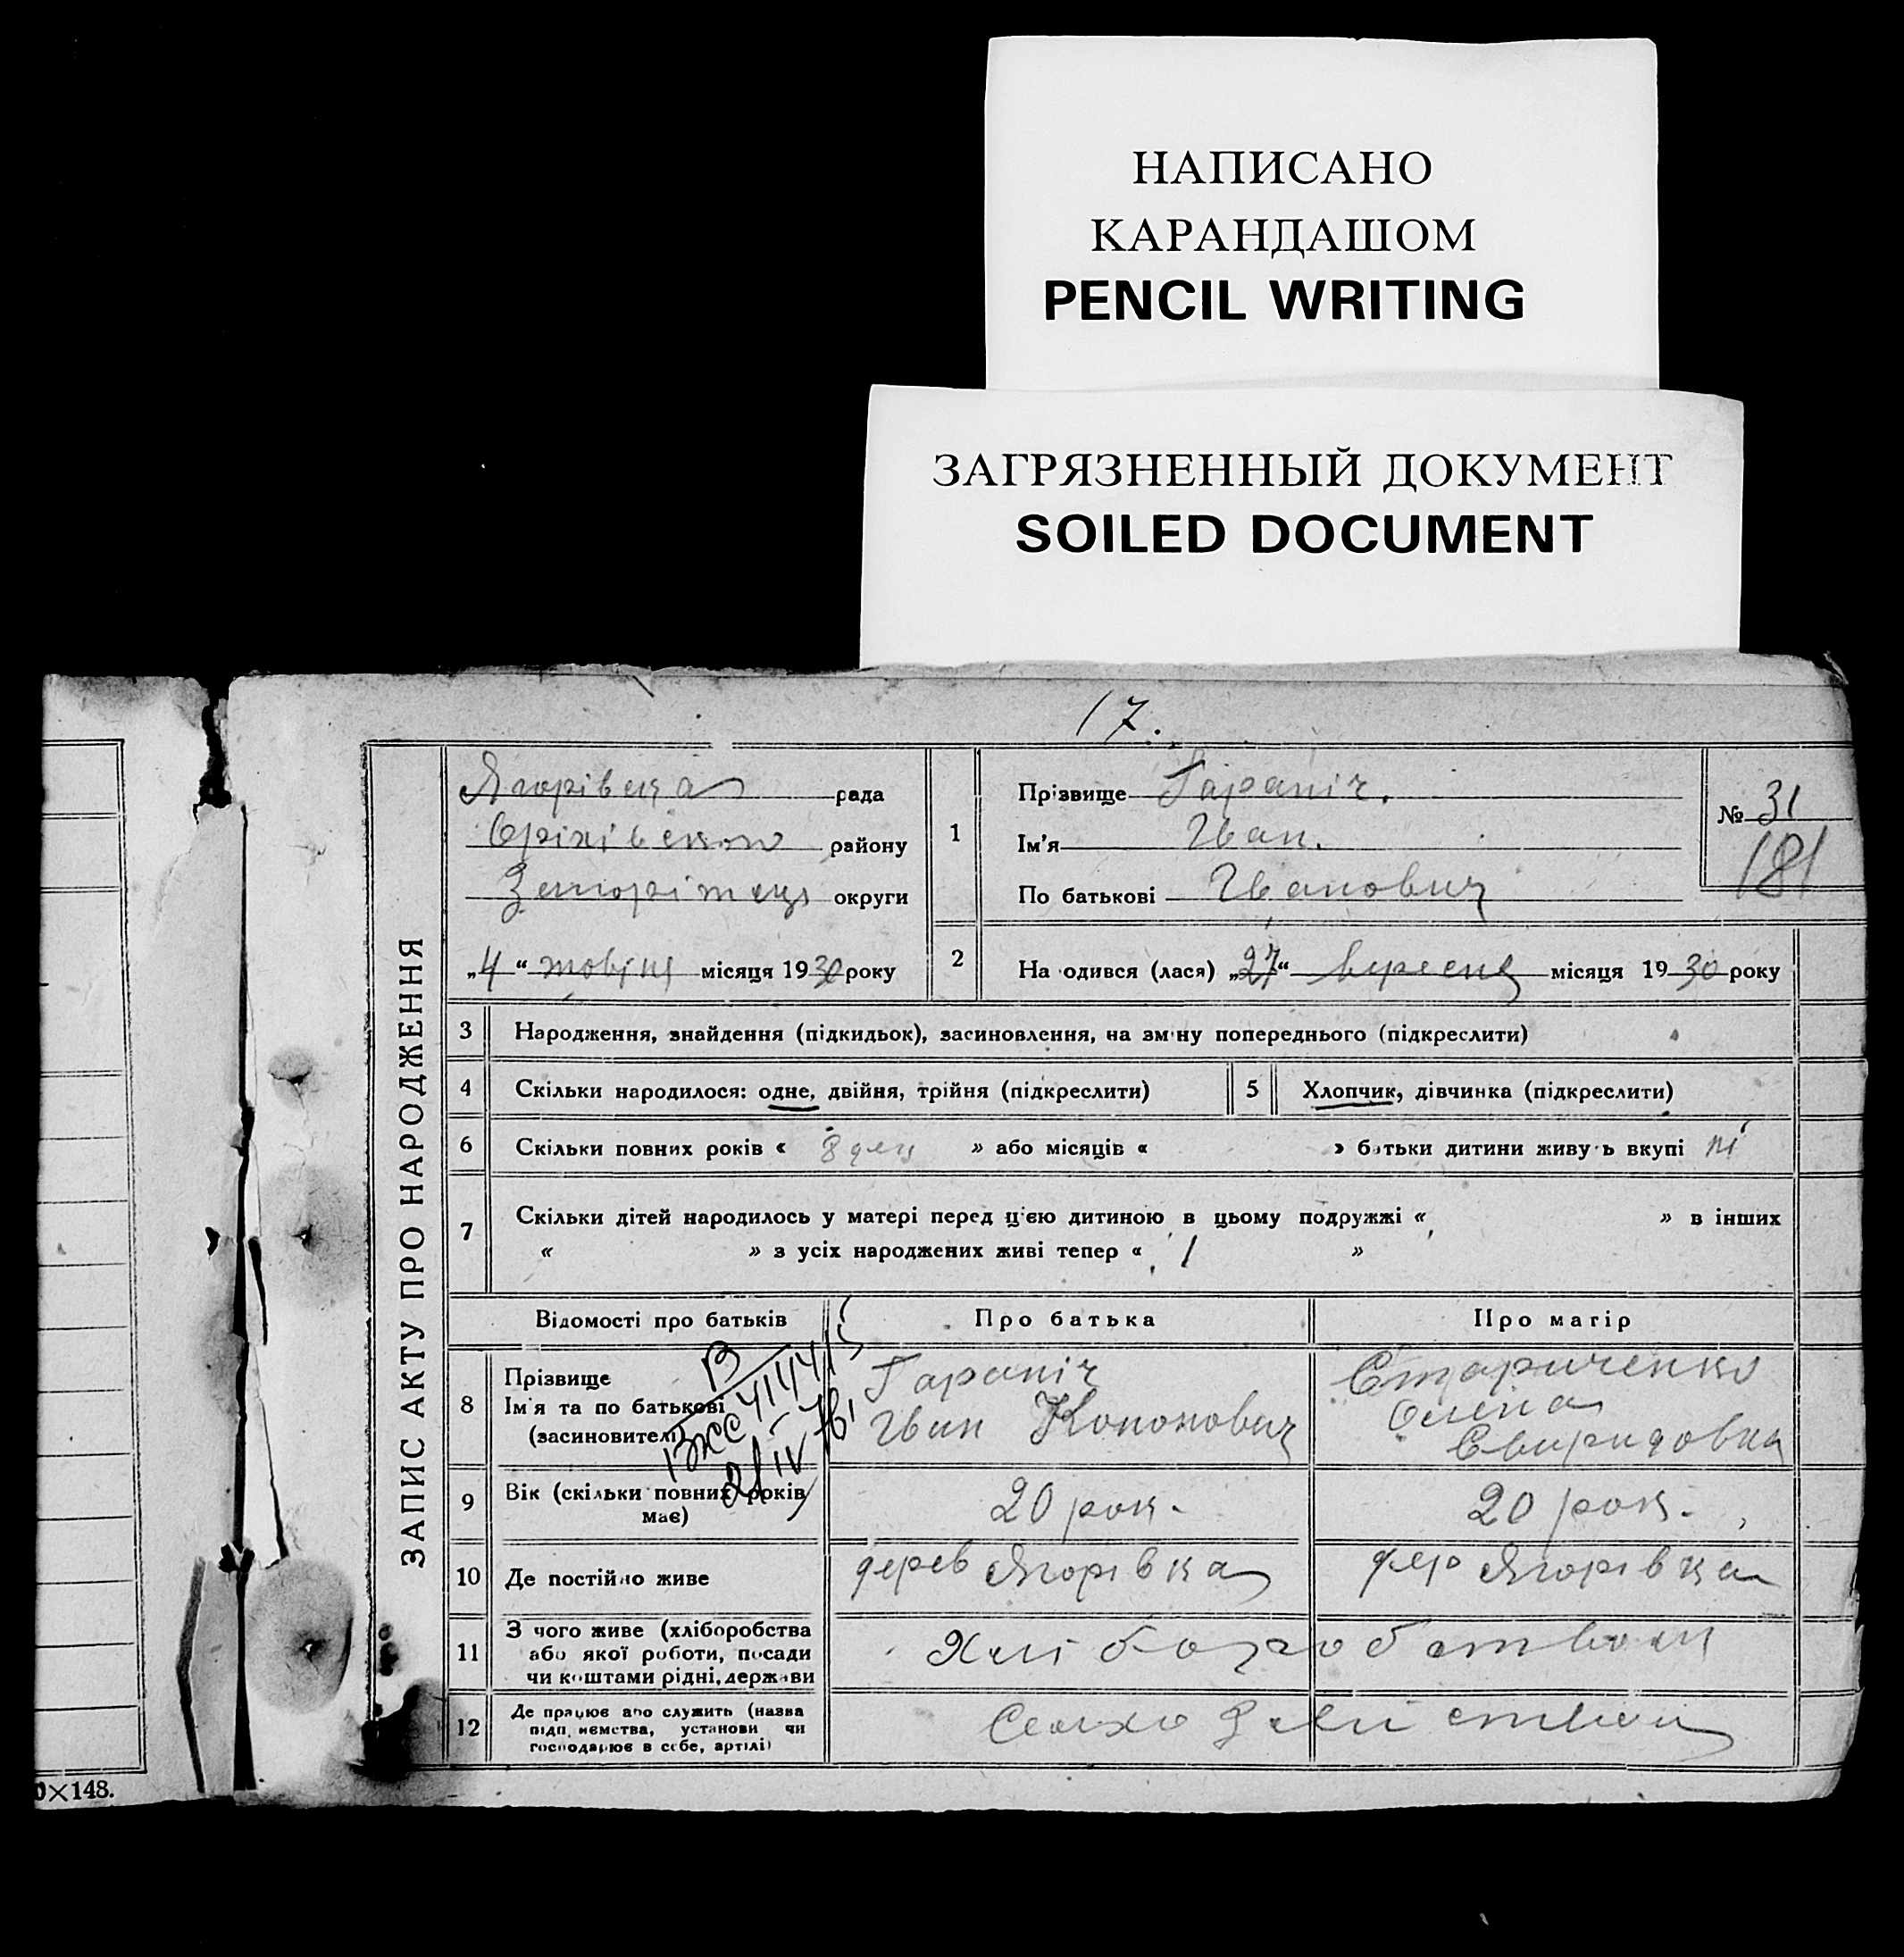 НАПИСАНО
КАРАНДАШОМ
PENCIL WRITING
ЗАГРЯЗНЕННЫЙ ДОКУМЕНТ
SOILED DOCUMENT
17.
ЗАПИС АКТУ ПРО НАРОДЖЕННЯ
Ягорівська рада
Оріхівського району
округи
„4“ жовтня місяця 1930 року
1
Прізвище Гарапіч.
Ім'я Іван.
По батькові Іванович
№ 31
181
2 На одився (лася) „27“ вересня місяця 1930 року
3 Народження, знайдення (підкидьок), засиновлення, на зміну попереднього (підкреслити)
4 Скільки народилося: одне, двійня, трійня (підкреслити) 5 Хлопчик, дівчинка (підкреслити)
6 Скільки повних років « » або місяців « » батьки дитини живуть вкупі
7 Скільки дітей народилось у матері перед цією дитиною в цьому подружжі « » в інших
« » з усіх народжених живі тепер « 1 »
Відомості про батьків Про батька Про матір
8 Прізвище
Ім'я та по батькові
(засиновителі)
Гарапіч
Іван Кононович
Стариченко
Олена
Свиридовна
9 Вік (скільки повних років має) 20 рок. 20 рок.
10 Де постійно живе дерев Ягорівка дер Ягорівка
11 З чого живе (хліборобства
або якої роботи, посади
чи коштами рідні, держави
Хліборобством
12 Де працює або служить (назва
підприємства, установи чи
господарює в себе, артілі)
0×148.